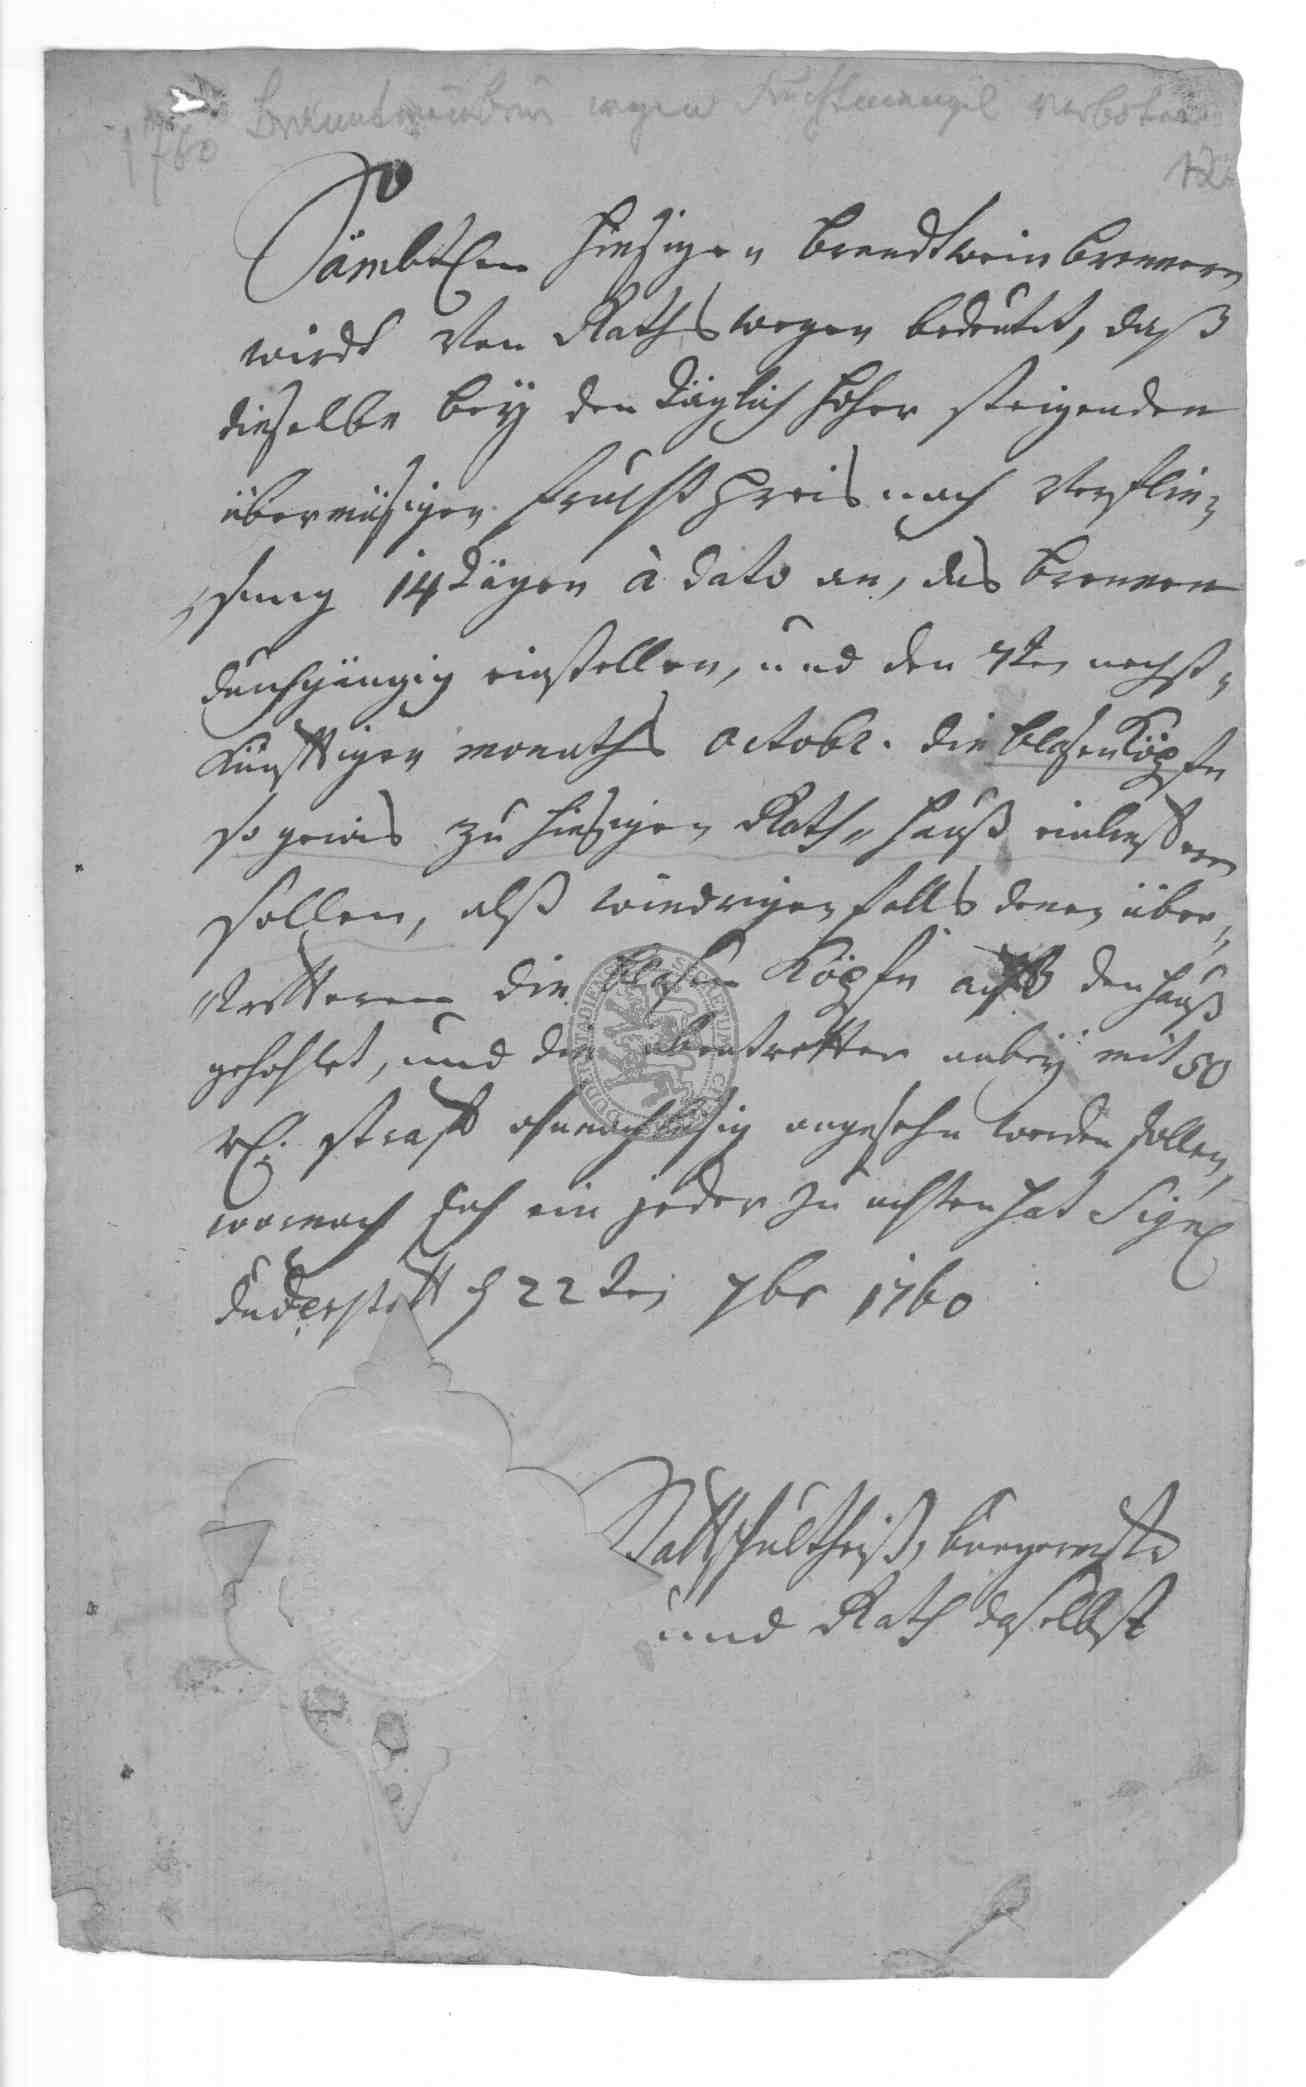 Branntwein wegen Fruchtmangel verboten
1760
Sämbtlen hiesigen brandtwein brennern
wirdt von Raths wegen bedeutet, daß
dieselbe beÿ den täglich höher steigenden
übermäsigen frucht Preis nach Verflie¬
¬sung 14 Tägen à dato an, das brennen
durchgängig einstellen, und den 7ten nechst¬
künfftigen monaths octobr. die blasen Köpfe
so gewis zu hiesigen Rath¬hauß einliefferen
sollen, alß wiedrigen falls denen über¬
trettern die blasen Köpfe auß den hauß
gehohlet, und die übertretter anbeÿ mit 50
rl. straff ohnnachläsig angesehn werden sollen,
wornach sich ein jeder zu achten hat Sigl
Duderstatt d 22ten 7br 1760
Stattschultheiß, burgermstr
und Rath daselbst